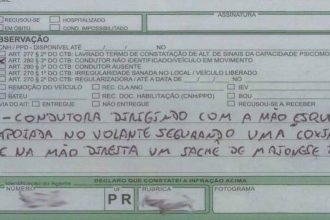 ASSINATURA
RECUSOU-SE HOSPITALIZADO
EM ÓBITO COND. IMPOSSIBILITADO
OBSERVAÇÃO
CNH / PPD - DISPONÍVEL ATÉ / / NOV
ART. 277 § 2º DO CTB: LAVRADO TERMO DE CONSTATAÇÃO DE ALT. DE SINAIS DA CAPACIDADE PSICOMO
ART. 280 § 3º DO CTB: CONDUTOR NÃO IDENTIFICADO/VEÍCULO EM MOVIMENTO
ART. 280 § 3º DO CTB: CONDUTOR AUSENTE
ART. 270 § 1º DO CTB: IRREGULARIDADE SANADA NO LOCAL / VEÍCULO LIBERADO
ART. 270 § 2º DO CTB: REGULARIZADORA / ATÉ A DATA / /
REMOÇÃO DO VEÍCULO REC. CLA IEV
BAU REC. DOC. HABILITAÇÃO (CNH/PPD) BOU
ENTREGUE NÃO ENTREGUE RECUSOU-SE A RECEBER
- CONDUTORA DIRIGINDO COM A MÃO ESQUE
APOIADA NO VOLANTE SEGURANDO UMA COXI
E NA MÃO DIREITA UM SACHÊ DE MAIONESE
DECLARO QUE CONSTATEI A INFRAÇÃO ACIMA
Identificação do Agente UF RUBRICA FOTOGRAMA
PR